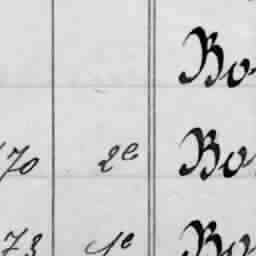 Bo
70 2e Bo
73 1e Bo